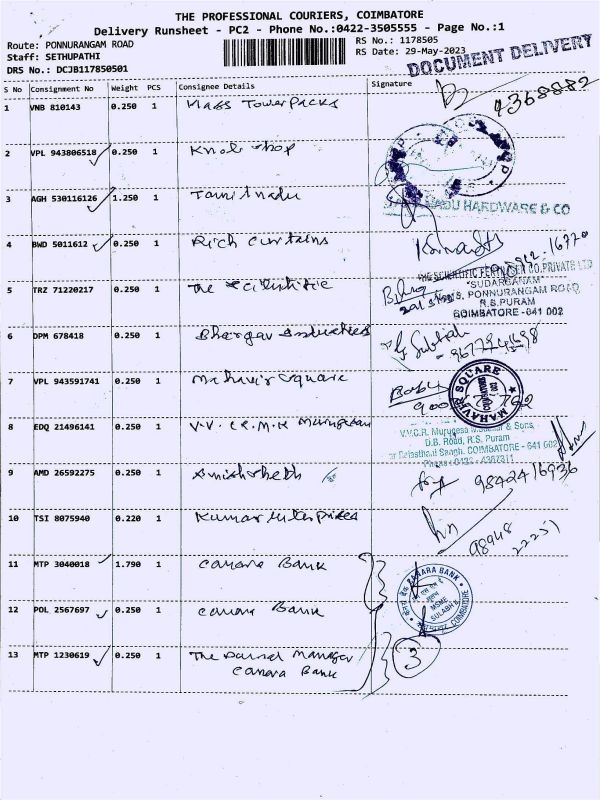 THE PROFESSIONAL COURIERS, COIMBATORE
Delivery Runsheet - PC2 - Phone No.:0422-3505555 - Page No.:1
Route: PONNURANGAM ROAD
RS No.: 1178505
Staff: SETHUPATHI
RS Date: 29-May-2023
DRS No.: DCJB117850501
DOCUMENT DELIVERY
S No Consignment No Weight PCS Consignee Details Signature
1 VNB 810143 0.250 1 Mass Tower Packs
4368882
2 VPL 943806518 0.250 1 Shop
3 AGH 530116126 1.250 1 Tamilnadu
HARDWARE & CO
4 BWD 5011612 0.250 1 Rich Curtains
16770
THE SCIENTIFIC FERTILISER CO.PRIVATE LTD
"SUDARSANAM"
5 TRZ 71220217 0.250 1 The Scientific
S. PONNURANGAM ROAD
R.S.PURAM
COIMBATORE - 641 002
6 DPM 678418 0.250 1 Bhargav Industries
7 VPL 943591741 0.250 1 Mahavir Square
Babu
MAHAVER SQUARE
8 EDQ 21496141 0.250 1 V.V.C.R.M.K Murugesan
V.V.C.R. Murugesa & Sons,
D.B. Road, R.S. Puram
COIMBATORE - 641 002
9 AMD 26592275 0.250 1 Amish sheth
98424 16936
10 TSI 8075940 0.220 1 Kumar Enterprises
98948
22251
11 MTP 3040018 1.790 1 Canara Bank
CANARA BANK
MSME
SULABH
COIMBATORE
12 POL 2567697 0.250 1 Canara Bank
13 MTP 1230619 0.250 1 The Manager
Canara Bank
3